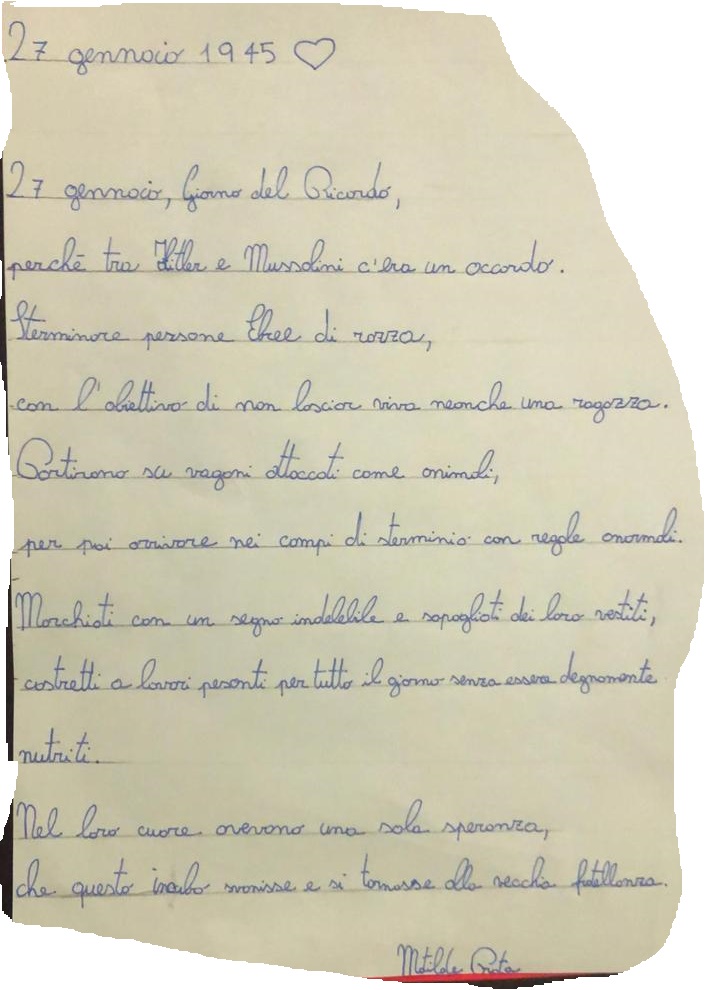 27 gennaio 1945 ♡
27 gennaio, Giorno del Ricordo,
perchè tra Hitler e Mussolini c'era un accordo.
Sterminare persone Ebree di razza,
con l'obiettivo di non lasciar viva neanche una ragazza.
Partirono su vagoni attaccati come animali,
per poi arrivare nei campi di sterminio con regole anormali.
Marchiati con un segno indelebile e sapogliati dei loro vestiti,
costretti a lavori pesanti per tutto il giorno senza essere degnamente
nutriti.
Nel loro cuore avevano una sola speranza,
che questo incubo svanisse e si tornasse alla vecchia fratellanza.
Matilde